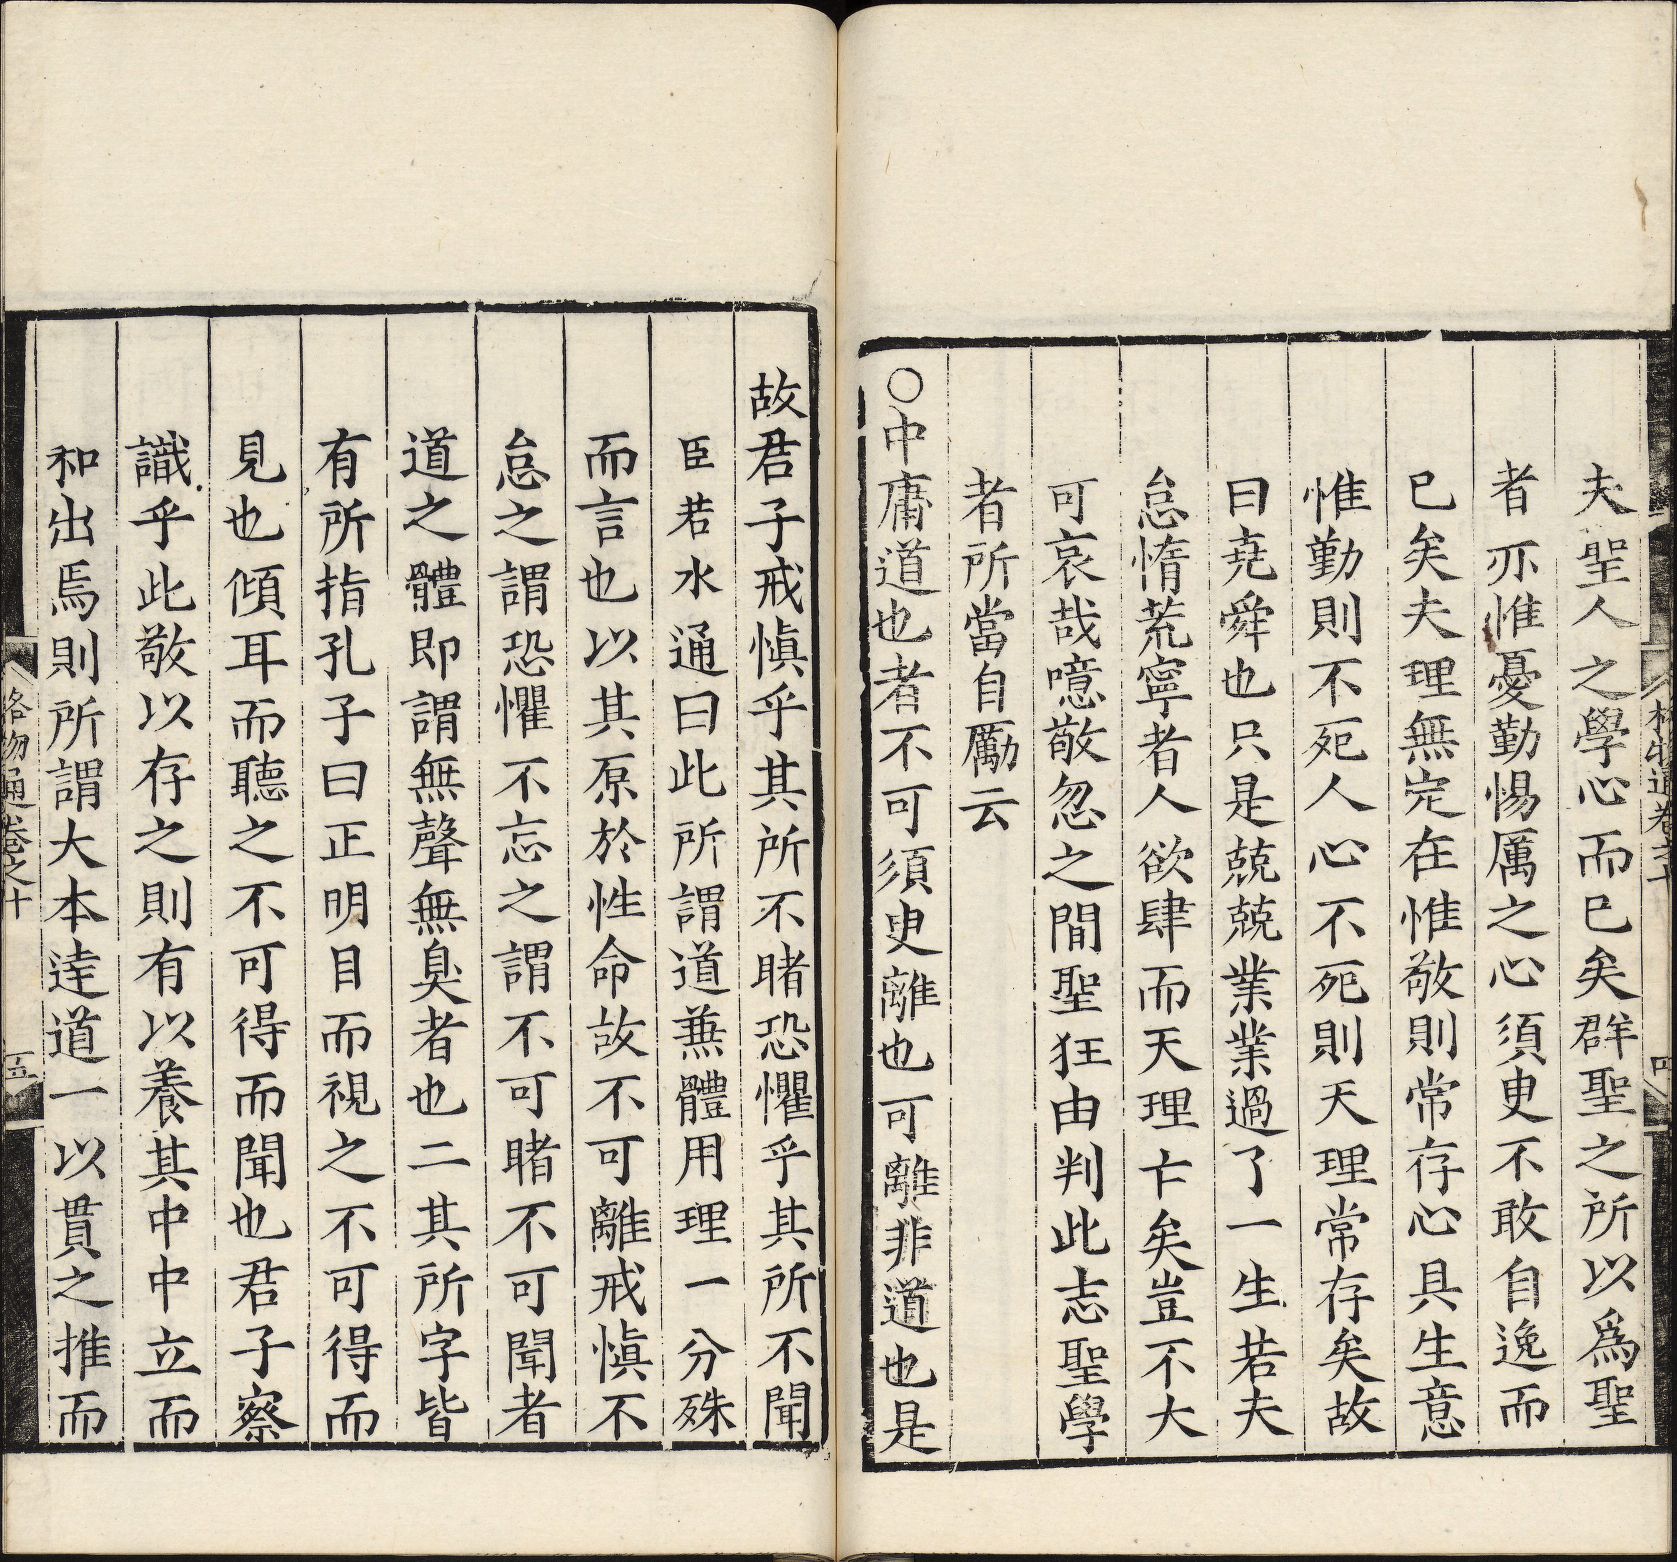 夫聖人之學心而已矣群聖之所以爲聖
者亦惟憂勤惕厲之心須臾不敢自逸而
已矣夫理無定在惟敬則常存心具生意
惟勤則不死人心不死則天理常存矣故
曰堯舜也只是兢兢業業過了一生若夫
怠惰荒寧者人欲肆而天理亡矣豈不大
可哀哉噫敬忽之間聖狂由判此志聖學
者所當自勵云
○中庸道也者不可須臾離也可離非道也是
格物通卷之十
四
故君子戒慎乎其所不睹恐懼乎其所不聞
臣若水通曰此所謂道蕪體用理一分殊
而言也以其原於性命故不可離戒慎不
怠之謂恐懼不忘之謂不可睹不可聞者
道之體即謂無聲無臭者也二其所字皆
有所指孔子曰正明目而視之不可得而
見也傾耳而聽之不可得而聞也君子察
識乎此敬以存之則有以養其中中立而
和出焉則所謂大本逹道一以貫之推而
格物通卷之十
五